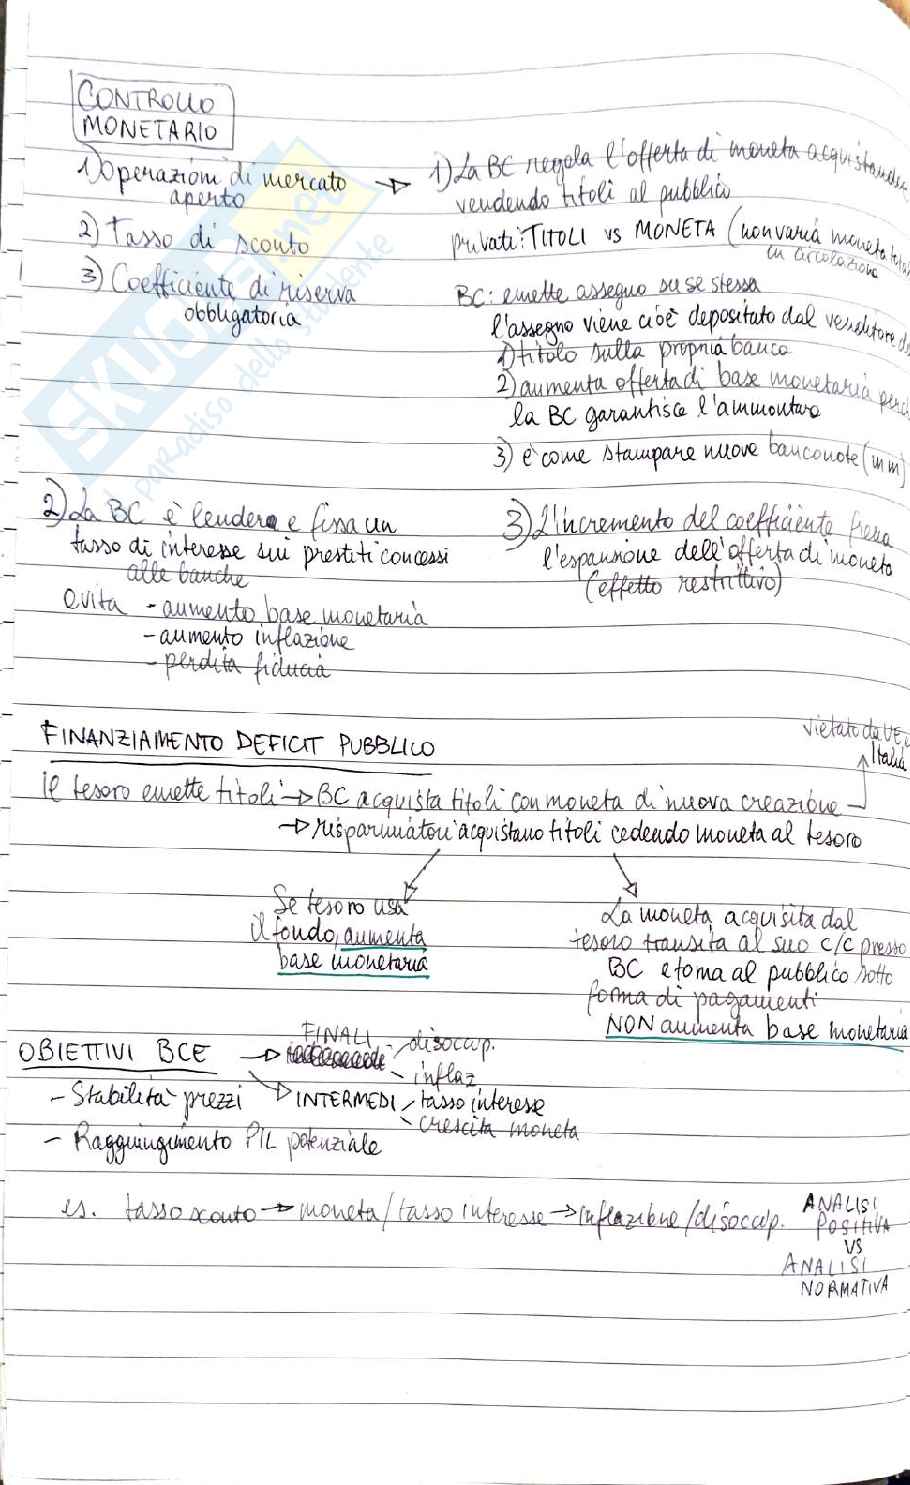 CONTROLLO
MONETARIO
1) Operazioni di mercato
aperto
2) Tasso di sconto
3) Coefficiente di riserva
obbligatoria
1) La BC regola l'offerta di moneta
vendendo titoli al pubblico
privati: TITOLI vs MONETA (non varia moneta
in circolazione
BC: emette assegno su se stessa
l'assegno viene cioè depositato dal venditore
1) titolo sulla propria banca
2) aumenta offerta di base monetaria
la BC garantisce l'ammontare
3) è come stampare nuove banconote (in m)
2) La BC è lender e fissa un
tasso di interesse sui prestiti concessi
alle banche
evita - aumento base monetaria
- aumento inflazione
- perdita fiducia
3) L'incremento del coefficiente frena
l'espansione dell'offerta di moneta
(effetto restrittivo)
FINANZIAMENTO DEFICIT PUBBLICO
vietato da UE
Italia
il tesoro emette titoli → BC acquista titoli con moneta di nuova creazione
→ risparmiatori acquistano titoli cedendo moneta al tesoro
Se tesoro usa
il fondo, aumenta
base monetaria
La moneta acquisita dal
tesoro transita al suo c/c presso
BC e torna al pubblico sotto
forma di pagamenti
NON aumenta base monetaria
OBIETTIVI BCE → FINALI / disoccup.
- inflaz
- Stabilità prezzi
→ INTERMEDI / tasso interesse
- crescita moneta
- Raggiungimento PIL potenziale
es. tasso sconto → moneta/tasso interesse → inflazione/disoccup.
ANALISI
POSITIVA
VS
ANALISI
NORMATIVA
SKUOLA.net
il paradiso dello studente